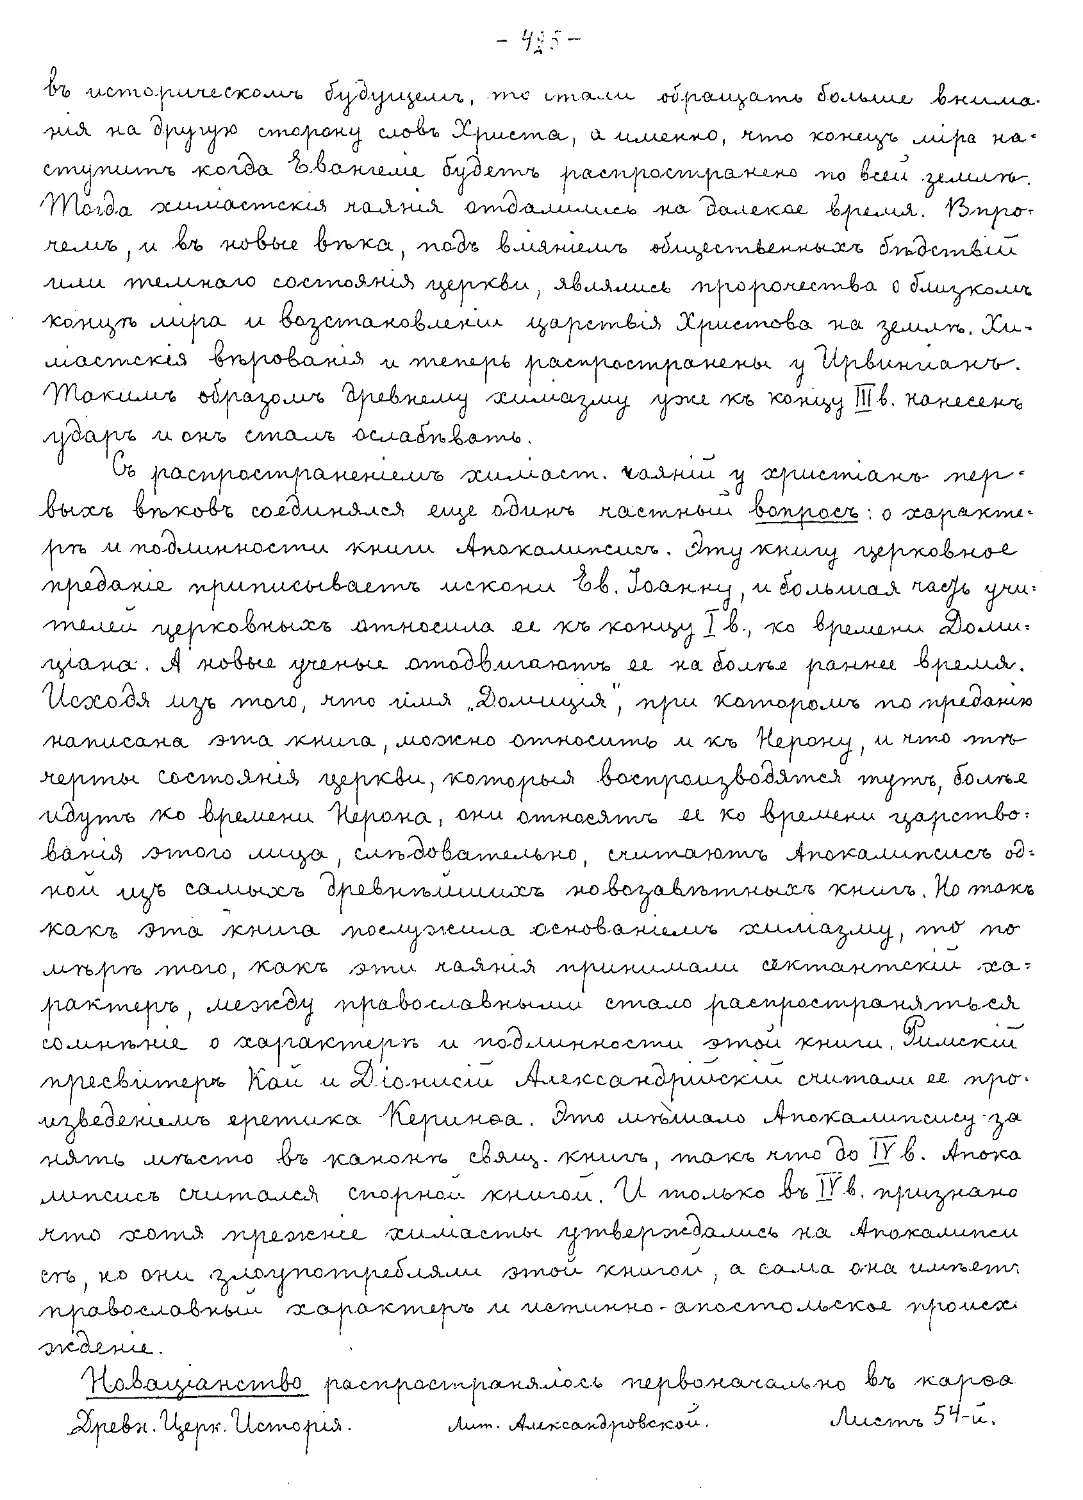 - 425 -
въ историческомъ будущемъ, то стали обращать больше внима-
нія на другую сторону словъ Христа, а именно, что конецъ міра на-
ступитъ когда Евангеліе будетъ распространено по всей землѣ.
Тогда хиліастскія чаянія отдалились на далекое время. Впро-
чемъ, и въ новые вѣка, подъ вліяніемъ общественныхъ бѣдствій
или темнаго состоянія церкви, являлись пророчества о близкомъ
концѣ міра и возстановленіи царствія Христова на землѣ. Хи-
ліастскія вѣрованія и теперь распространены у Ирвингіанъ.
Такимъ образомъ древнему хиліазму уже къ концу III в. нанесенъ
ударъ и онъ сталъ ослабѣвать.
Съ распространеніемъ хиліаст. чаяній у христіанъ пер-
выхъ вѣковъ соединялся еще одинъ частный вопросъ: о характе-
рѣ и подлинности книги Апокалипсисъ. Эту книгу церковное
преданіе приписываетъ искони Ев. Іоанну, и большая часть учи-
телей церковныхъ относила ее къ концу I в., ко времени Доми-
ціана. А новые ученые отодвигаютъ ее на болѣе раннее время.
Исходя изъ того, что имя „Домиція", при которомъ по преданію
написана эта книга, можно относить и къ Нерону, и что тѣ
черты состоянія церкви, которыя воспроизводятся тутъ, болѣе
идутъ ко времени Нерона, они относятъ ее ко времени царство-
ванія этого лица, слѣдовательно, считаютъ Апокалипсисъ од-
ной изъ самыхъ древнѣйшихъ новозавѣтныхъ книгъ. Но такъ
какъ эта книга послужила основаніемъ хиліазму, то по
мѣрѣ того, какъ эти чаянія принимали сектантскій ха-
рактеръ, между православными стало распространяться
сомнѣніе о характерѣ и подлинности этой книги. Римскій
пресвитеръ Кай и Діонисій Александрійскій считали ее про-
изведеніемъ еретика Керинѳа. Это мѣшало Апокалипсису за
нять мѣсто въ канонѣ свящ. книгъ, такъ что до IV в. Апока
липсисъ считался спорной книгой. И только въ IV в. признано
что хотя прежніе хиліасты утверждались на Апокалипси
сѣ, но они злоупотребляли этой книгой, а сама она имѣетъ
православный характеръ и истинно-апостольское происх
жденіе.
Новаціанство распространялось первоначально въ карѳа
Древн. Церк. Исторія. Лит. Александровской. Листъ 54-й.